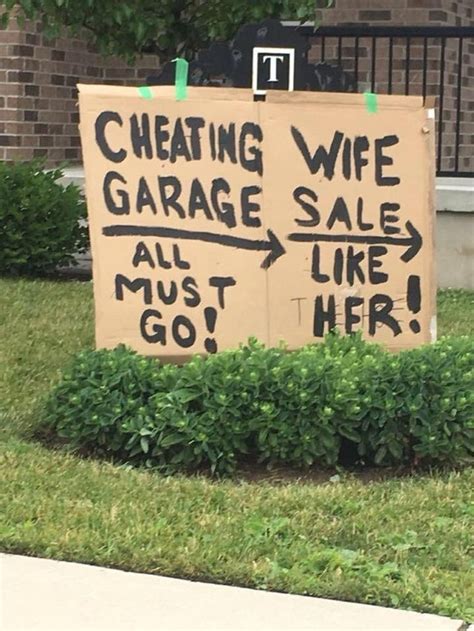 T
CHEATING WIFE
GARAGE SALE
ALL
MUST
GO!
LIKE
HER!